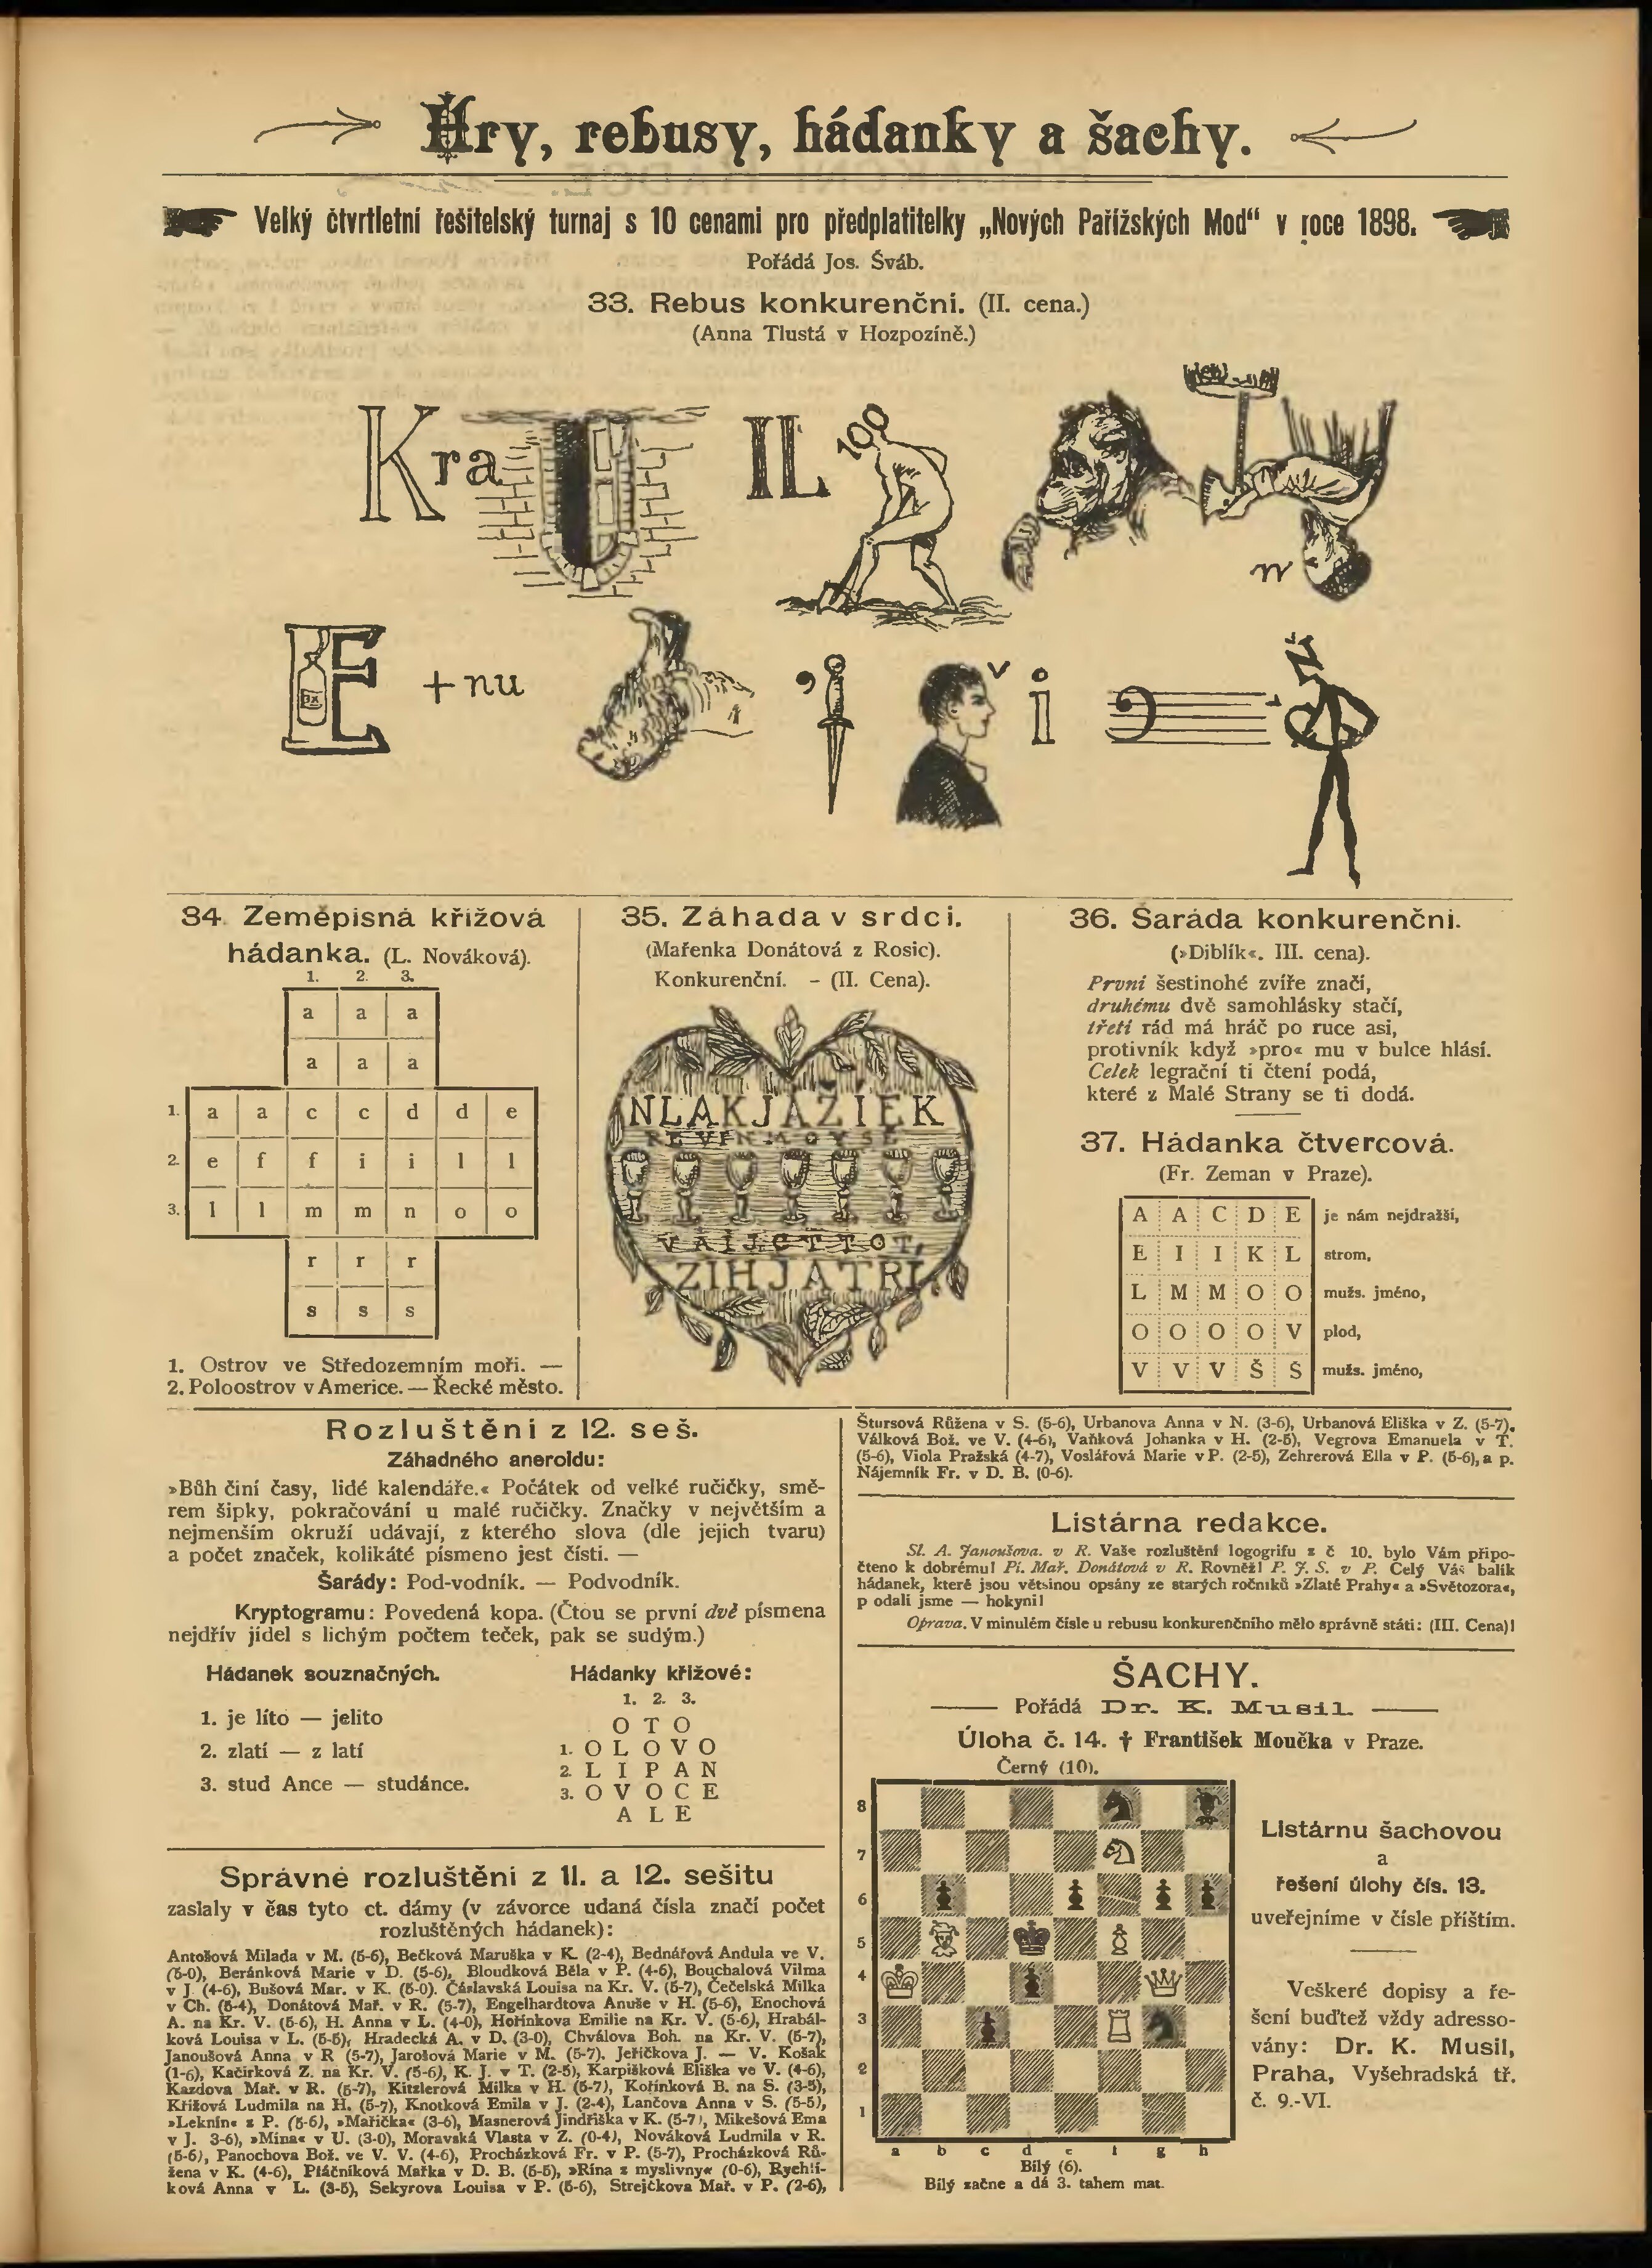 Hry, rebusy, hádanky a šachy.
Velký čtvrtletní řešitelský turnaj s 10 cenami pro předplatitelky „Nových Pařížských Mod“ v roce 1898.
Pořádá Jos. Šváb.
33. Rebus konkurenčni. (II. cena.)
(Anna Tlustá v Hozpozíně.)
Kra
IL
100
n
E
+nu
i
34. Zeměpisná křížová
hádanka. (L. Nováková).
1. 2. 3.
a a a
a a a
1. a a c c d d e
2. e f f i i l l
3. l l m m n o o
r r r
s s s
1. Ostrov ve Středozemním moři. —
2. Poloostrov v Americe. — Řecké město.
35. Záhada v srdci.
(Mařenka Donátová z Rosic).
Konkurenční. - (II. Cena).
NLAKJAŽIEK
VAIJCTTOT,
ZIHJATRI
36. Šaráda konkurenčni.
(»Diblík«. III. cena).
První šestinohé zvíře značí,
druhému dvě samohlásky stačí,
třetí rád má hráč po ruce asi,
protivník když »pro« mu v bulce hlásí.
Celek legrační ti čtení podá,
které z Malé Strany se ti dodá.
37. Hádanka čtvercová.
(Fr. Zeman v Praze).
A A C D E je nám nejdražší,
E I I K L strom,
L M M O O mužs. jméno,
O O O O V plod,
V V V Š Š mužs. jméno,
Rozluštěni z 12. seš.
Záhadného aneroidu:
»Bůh činí časy, lidé kalendáře.« Počátek od velké ručičky, smě-
rem šipky, pokračování u malé ručičky. Značky v největším a
nejmenším okruží udávají, z kterého slova (dle jejich tvaru)
a počet značek, kolikáté písmeno jest čísti. —
Šarády: Pod-vodník. — Podvodník.
Kryptogramu: Povedená kopa. (Čtou se první dvě písmena
nejdřív jídel s lichým počtem teček, pak se sudým.)
Hádanek souznačných.
1. je líto — jelito
2. zlatí — z latí
3. stud Ance — studánce.
Hádanky křížové:
1. 2. 3.
O T O
1. O L O V O
2. L I P A N
3. O V O C E
A L E
Správné rozluštěni z 11. a 12. sešitu
zaslaly v čas tyto ct. dámy (v závorce udaná čísla značí počet
rozluštěných hádanek):
Antošová Milada v M. (5-6), Bečková Maruška v K. (2-4), Bednářová Andula ve V.
(5-0), Beránková Marie v D. (5-6), Bloudková Běla v P. (4-6), Bouchalová Vilma
v J. (4-6), Bušová Mar. v K. (5-0). Čáslavská Louisa na Kr. V. (5-7), Čečelská Milka
v Ch. (5-4), Donátová Mař. v R. (5-7), Engelhardtova Anuše v H. (5-6), Enochová
A. na Kr. V. (5-6), H. Anna v L. (4-0), Hořínkova Emilie na Kr. V. (5-6), Hrabál-
ková Louisa v L. (5-5), Hradecká A. v D. (3-0), Chválova Boh. na Kr. V. (5-7),
Janoušová Anna v R (5-7), Jarošová Marie v M. (5-7). Jeřičkova J. — V. Košak
(1-6), Kačírková Z. na Kr. V. (5-6), K. J. v T. (2-5), Karpíšková Eliška ve V. (4-6),
Kazdova Mař. v R. (5-7), Kitzlerová Milka v H. (5-7), Kořínková B. na S. (3-5),
Křížová Ludmila na H. (5-7), Knotková Emila v J. (2-4), Lančova Anna v S. (5-5),
»Leknín« z P. (5-6), »Mařička« (3-6), Masnerová Jindřiška v K. (5-7), Mikešová Ema
v J. 3-6), »Mína« v U. (3-0), Moravská Vlasta v Z. (0-4), Nováková Ludmila v R.
(5-6), Panochova Bož. ve V. V. (4-6), Procházková Fr. v P. (5-7), Procházková Rů-
žena v K. (4-6), Ptáčníková Mařka v D. B. (5-5), »Rína z myslivny« (0-6), Rychlí-
ková Anna v L. (3-5), Sekyrova Louisa v P. (5-6), Strejčkova Mař. v P. (2-6),
Štursová Růžena v S. (5-6), Urbanova Anna v N. (3-6), Urbanová Eliška v Z. (5-7),
Válková Bož. ve V. (4-6), Vaňková Johanka v H. (2-5), Vegrova Emanuela v T.
(5-6), Viola Pražská (4-7), Voslářová Marie v P. (2-5), Zehrerová Ella v P. (5-6), a p.
Nájemník Fr. v D. B. (0-6).
Listárna redakce.
Sl. A. Janoušova. v R. Vaše rozluštění logogrifu z č 10. bylo Vám připo-
čteno k dobrému! Pí. Mař. Donátová v R. Rovněž! P. J. S. v P. Celý Váš balík
hádanek, které jsou většinou opsány ze starých ročníků »Zlaté Prahy« a »Světozora«,
p odali jsme — hokyni!
Oprava. V minulém čísle u rebusu konkurenčního mělo správně státi: (III. Cena)!
ŠACHY.
Pořádá Dr. K. Musil.
Úloha č. 14. † František Moučka v Praze.
Černý (10).
8
7
6
5
4
3
2
1
a b c d e f g h
Bílý (6).
Bílý začne a dá 3. tahem mat.
Listárnu šachovou
a
řešení úlohy čís. 13.
uveřejníme v čísle příštím.
Veškeré dopisy a ře-
šení buďtež vždy adresso-
vány: Dr. K. Musil,
Praha, Vyšehradská tř.
č. 9.-VI.